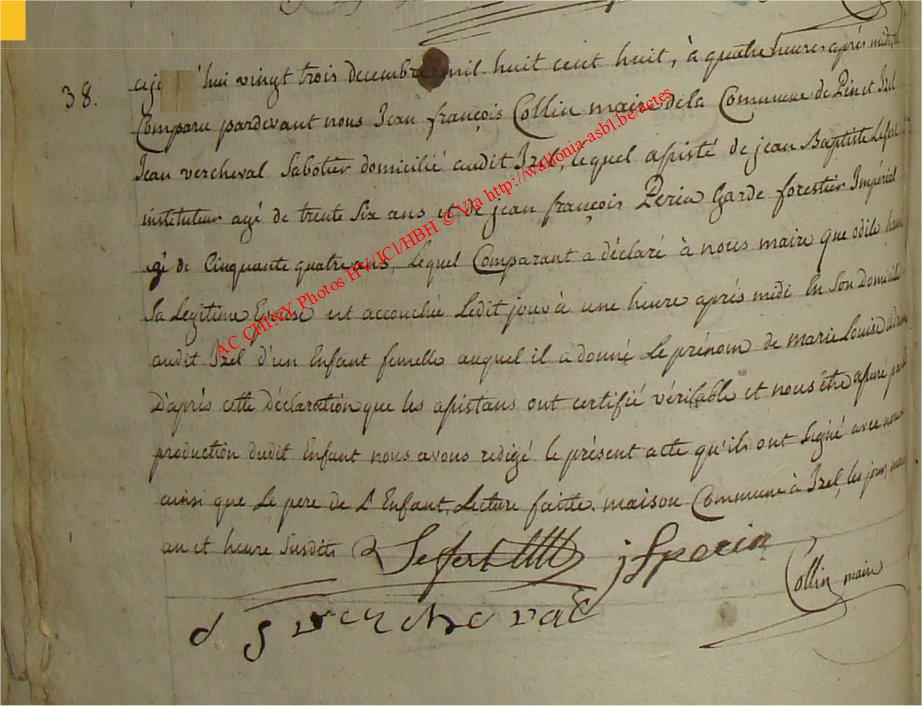 38.
hui vingt trois decembre mil huit cent huit, à quatre heures après midi
Comparu pardevant nous Jean françois Collin maire de la Commune de Pin et Izel
Jean vercheval Sabotier domicilié audit Izel, lequel assisté de jean Baptiste Lefert
instituteur agé de trente Six ans et de jean françois Perin Garde forestier Impérial
agé de Cinquante quatre ans, Lequel Comparant a déclaré à nous maire que odile
Sa Legitime Epouse est accouchée Ledit jour à une heure après midi En Son Domicile
audit Izel d'un Enfant femelle auquel il a donné Le prénom de marie Louise
D'après cette déclaration que les assistans ont certifié véritable et nous être assuré par
production dudit Enfant nous avons redigé le présent acte qu'ils ont Signé avec nous
ainsi que Le pere de L'Enfant, Lecture faitte. maison Commune à Izel, les jour, mois
an et heure Susdits
Leffert
j f perin
Collin maire
vercheval
AC CHINY Photos HV/JCl/HBH © Via http://wallonia-asbl.be/actes